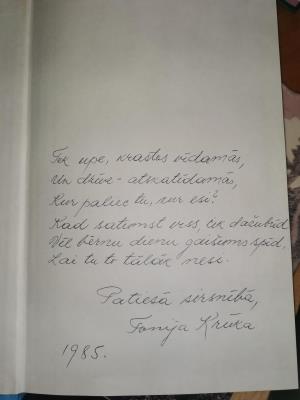 Tek upe, krastos vīdamās,
Un dzīve - atskatīdamās,
Kur paliec tu, kur esi?
Kad satumst viss, tik dažubrīd
Vēl bērnu dienu gaišums spīd,
Lai tu to tālāk nesi.
Patiesā sirsnībā,
Tonija Krūka
1985.